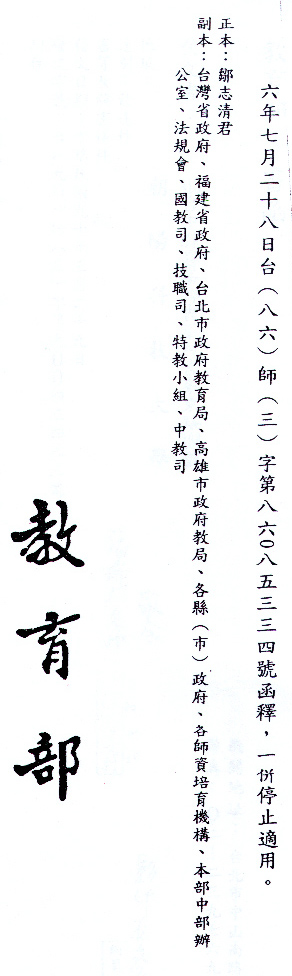 六年七月二十八日台（八六）師（三）字第八六０八五三三四號函釋，一併停止適用。
正本：鄒志清君
副本：台灣省政府、福建省政府、台北市政府教育局、高雄市政府教局、各縣（市）政府、各師資培育機構、本部中部辦
公室、法規會、國教司、技職司、特教小組、中教司
教育部